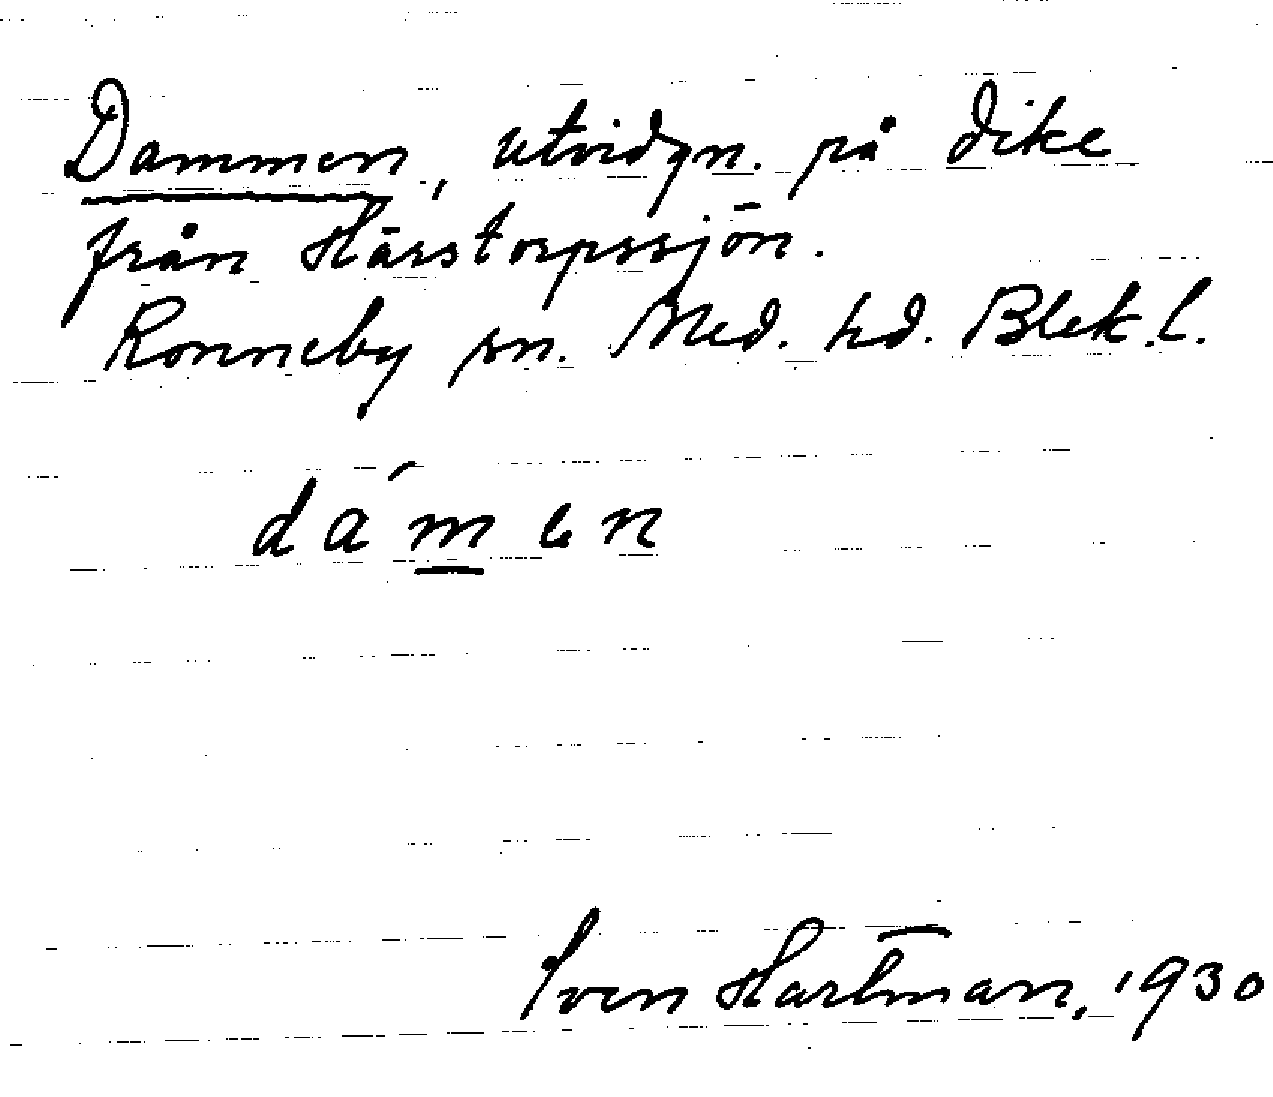 Dammen, utvidgn. på dike
från Härstorpssjön.
Ronneby sn. Med. hd. Blek. l.
dám̲en
Sven Hartman, 1930